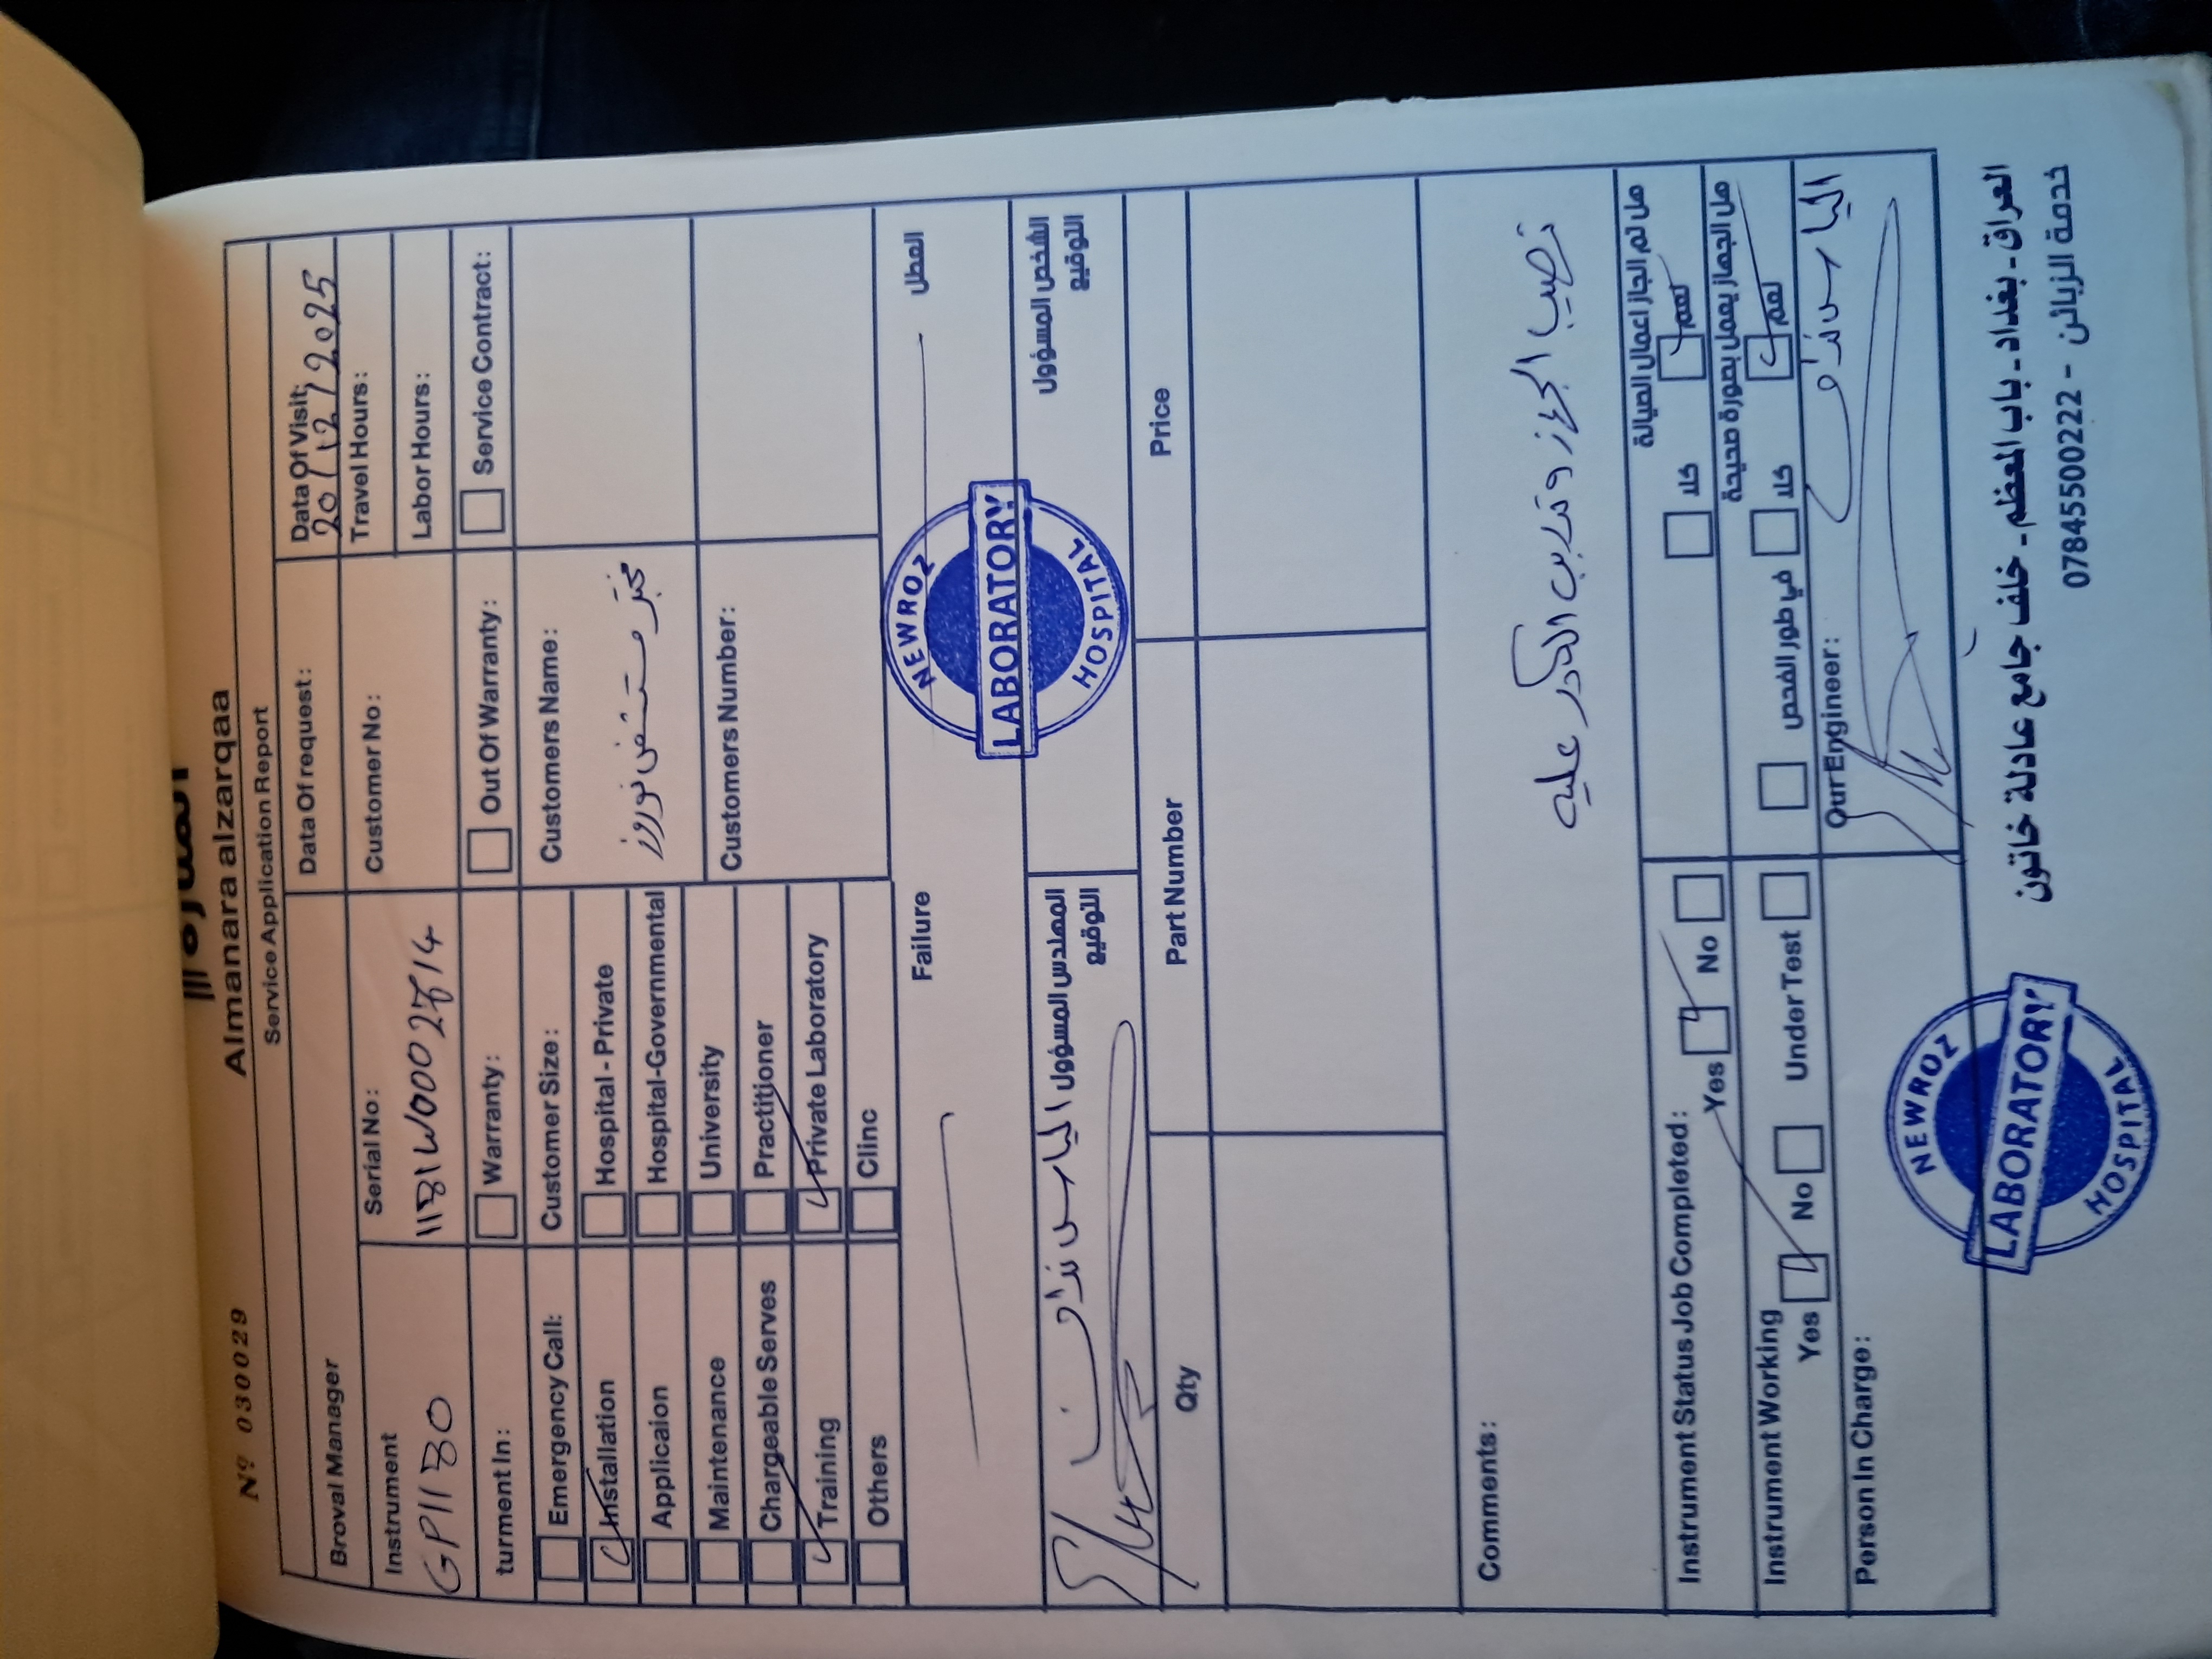 Nº 030029
Almanara alzarqaa
Service Application Report
Broval Manager
Data Of request:
Data Of Visit:
20/12/2025
Instrument
GP1180
Serial No:
Customer No:
Travel Hours:
Labor Hours:
turment In:
Warranty:
Out Of Warranty:
Service Contract:
Emergency Call:
Installation
Applicaion
Maintenance
Chargeable Serves
Training
Others
Customer Size:
Hospital - Private
Hospital-Governmental
University
Practitioner
Private Laboratory
Clinc
Customers Name:
مختبر مستشفى نوروز
Customers Number:
Failure
العطل
NEWROZ
LABORATORY
HOSPITAL
المهندس المسؤول
التوقيع
الشخص المسؤول
التوقيع
Qty
Part Number
Price
Comments:
نصب الجهاز وتدريب الكادر عليه
Instrument Status Job Completed:
Yes
No
هل تم انجاز اعمال الصيانة
كلا
نعم
Instrument Working
Yes
No
Under Test
هل الجهاز يعمل بصورة صحيحة
في طور الفحص
كلا
نعم
Person In Charge:
Our Engineer:
NEWROZ
LABORATORY
HOSPITAL
العراق - بغداد - باب المعظم - خلف جامع عادلة خاتون
خدمة الزبائن - 07845500222